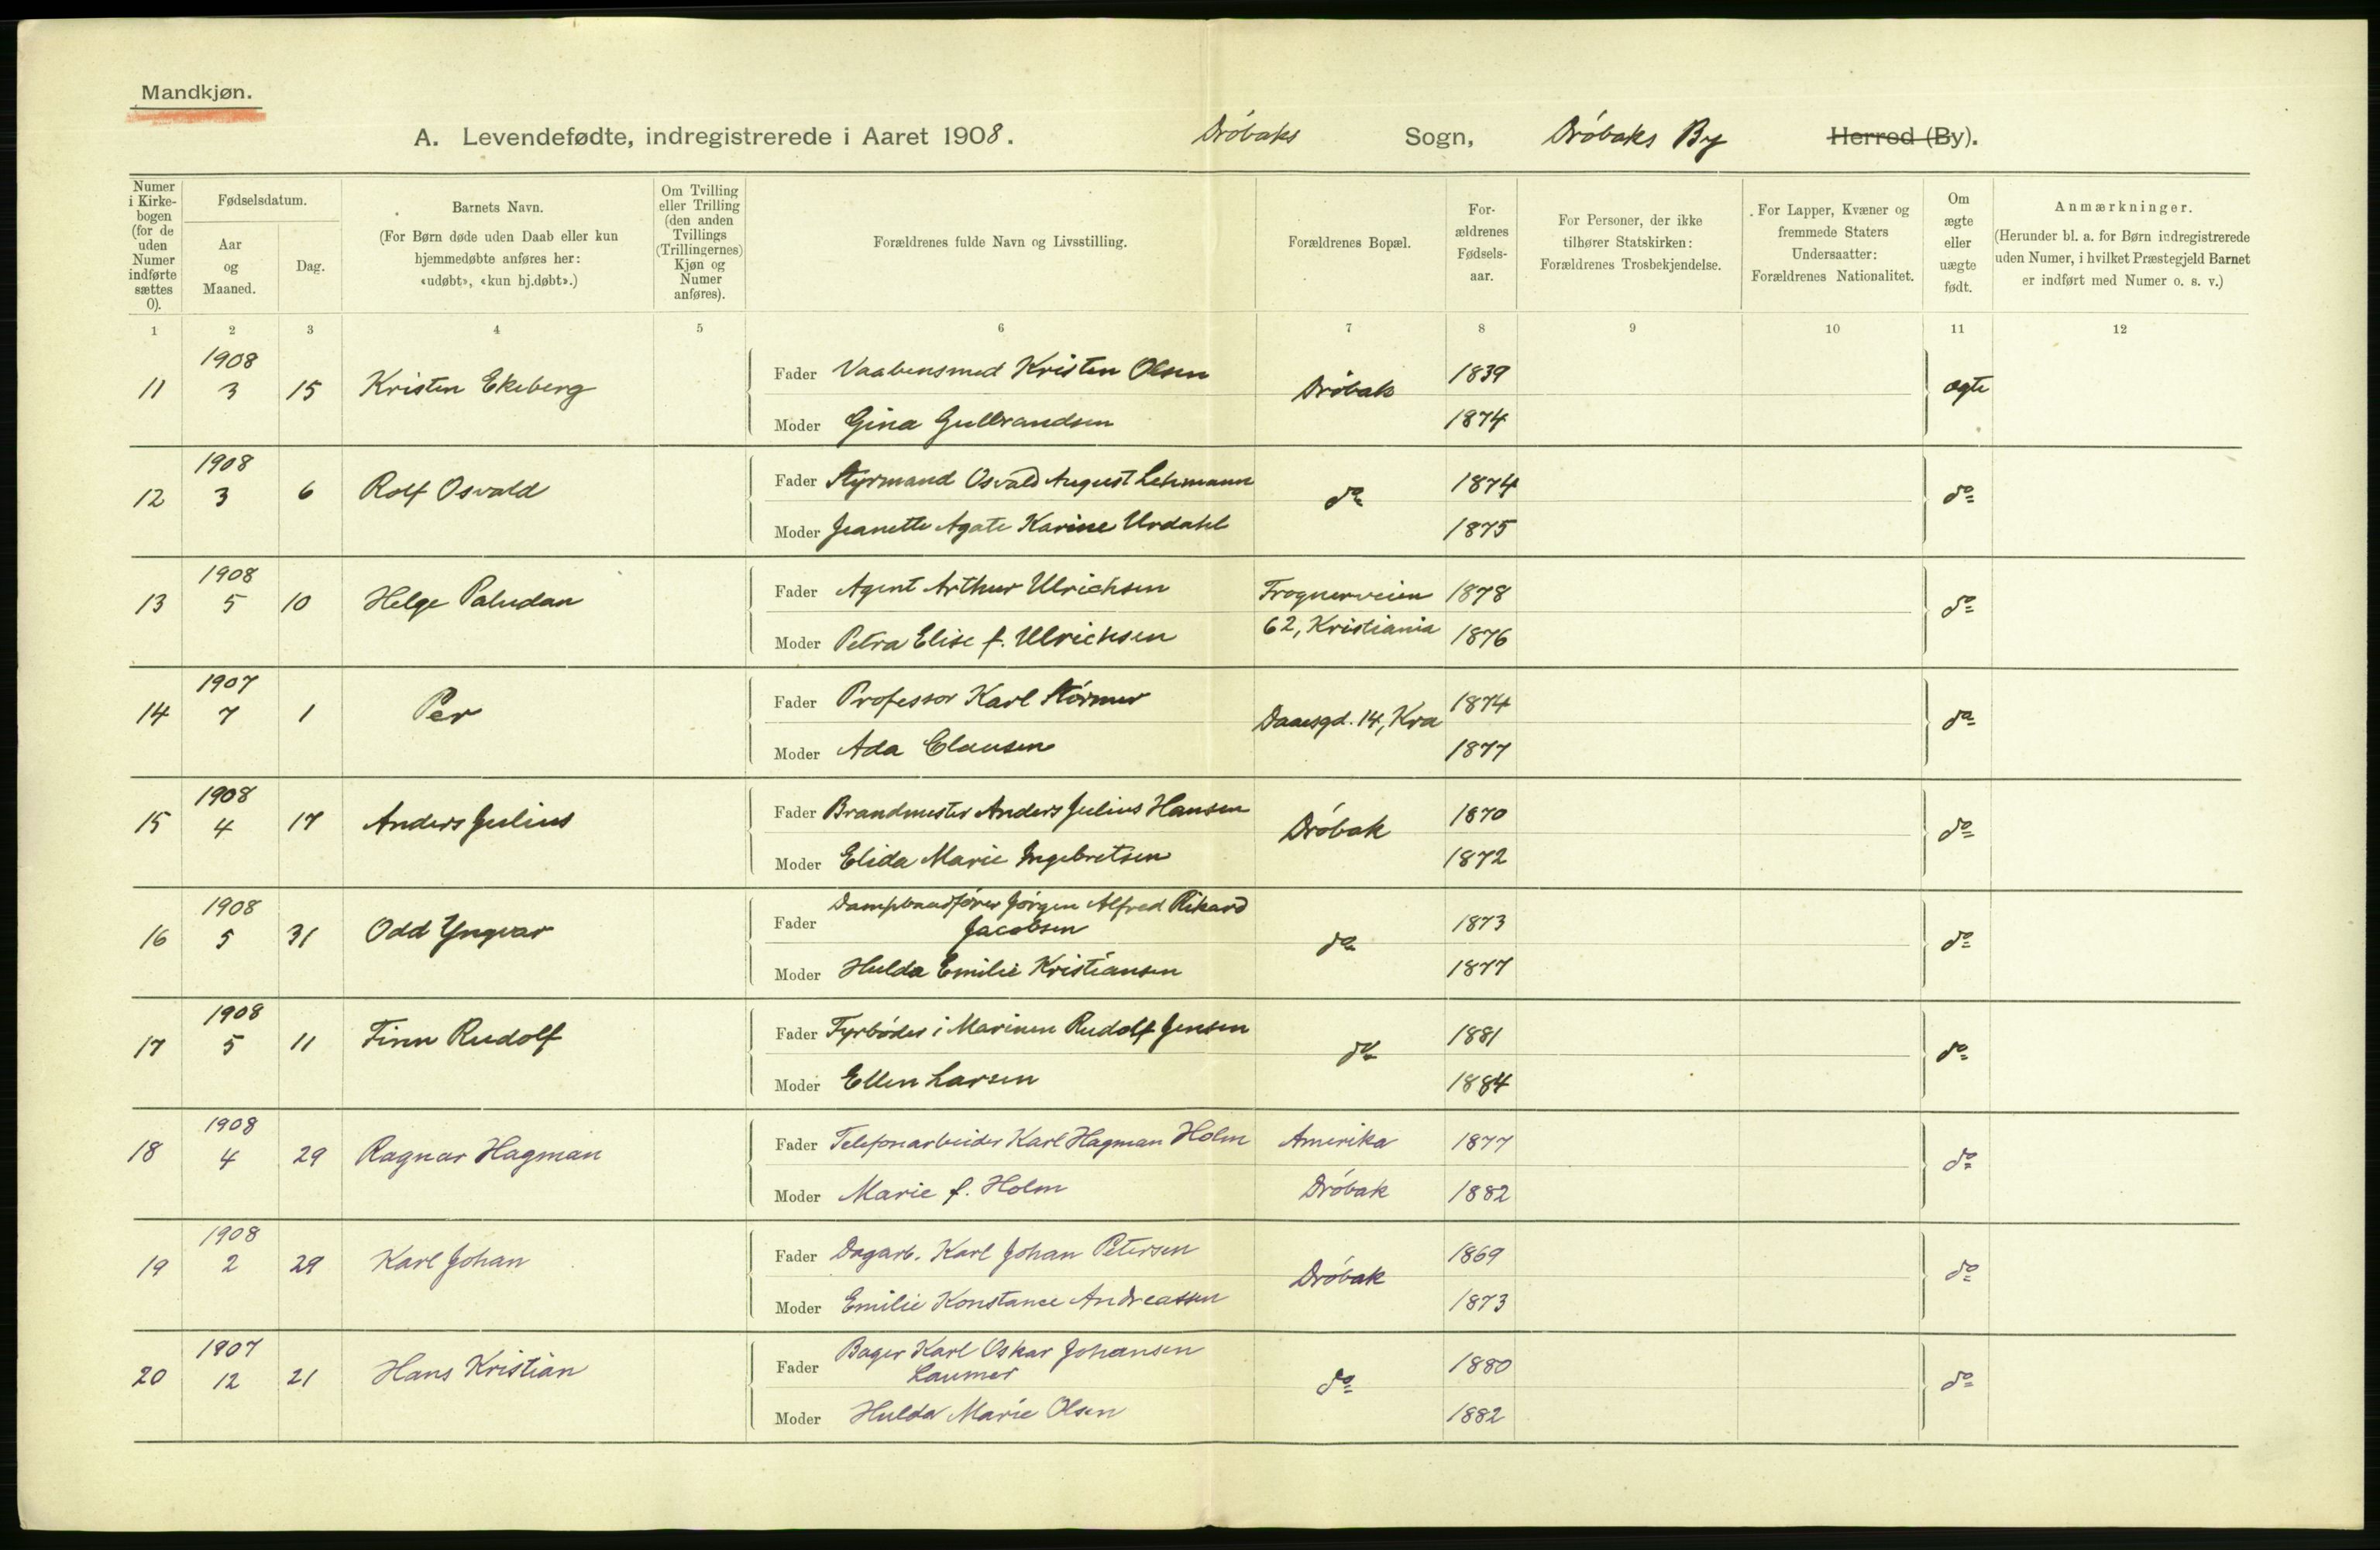 Mandkjøn.
A. Levendefødte, indregistrerede i Aaret 1908. Drøbaks Sogn, Drøbaks By Herred (By).
Numer i Kirkebogen (for de uden Numer indførte sættes 0).
Fødselsdatum.
Aar og Maaned.
Dag.
Barnets Navn.
(For Børn døde uden Daab eller kun
hjemmedøbte anføres her:
«udøbt», «kun hj.døbt».)
Om Tvilling
eller Trilling
(den anden
Tvillings
(Trillingernes)
Kjøn og
Numer
anføres).
Forældrenes fulde Navn og Livsstilling.
Forældrenes Bopæl.
For-
ældrenes
Fødsels-
aar.
For Personer, der ikke
tilhører Statskirken:
Forældrenes Trosbekjendelse.
For Lapper, Kvæner og
fremmede Staters
Undersaatter:
Forældrenes Nationalitet.
Om
ægte
eller
uægte
født.
Anmærkninger.
(Herunder bl. a. for Børn indregistrerede
uden Numer, i hvilket Præstegjeld Barnet
er indført med Numer o. s. v.)
1 2 3 4 5 6 7 8 9 10 11 12
1908
11 3 15 Kristen Ekeberg Fader Vaabensmed Kristen Olsen Drøbak 1839 ægte
Moder Gina Gulbrandsen 1874
1908
12 3 6 Rolf Osvald Fader Styrmand Osvald August Lehmann do 1874 do
Moder Jeanette Agate Karine Urdahl 1875
1908
13 5 10 Helge Paludan Fader Agent Arthur Ulrichsen Frognerveien 1878 do
Moder Petra Elise f. Ulrichsen 62, Kristiania 1876
1907
14 7 1 Per Fader Professor Karl Størmer Daaesgd. 14, Kra 1874 do
Moder Ada Clausen 1877
1908
15 4 17 Anders Julius Fader Brandmester Anders Julius Hansen Drøbak 1870 do
Moder Elida Marie Ingebretsen 1872
1908
16 5 31 Odd Yngvar Fader Dampbaadfører Jørgen Alfred Rikard
Jacobsen do 1873 do
Moder Hulda Emilie Kristiansen 1877
1908
17 5 11 Finn Rudolf Fader Fyrbøder i Marinen Rudolf Jensen do 1881 do
Moder Ellen Larsen 1884
1908
18 4 29 Ragnar Hagman Fader Telefonarbeider Karl Hagman Holm Amerika 1877 do
Moder Marie f. Holm Drøbak 1882
1908
19 2 29 Karl Johan Fader Dagarb. Karl Johan Petersen Drøbak 1869 do
Moder Emilie Konstance Andreassen 1873
1907
20 12 21 Hans Kristian Fader Bager Karl Oskar Johansen
Laumer do 1880 do
Moder Hulda Marie Olsen 1882